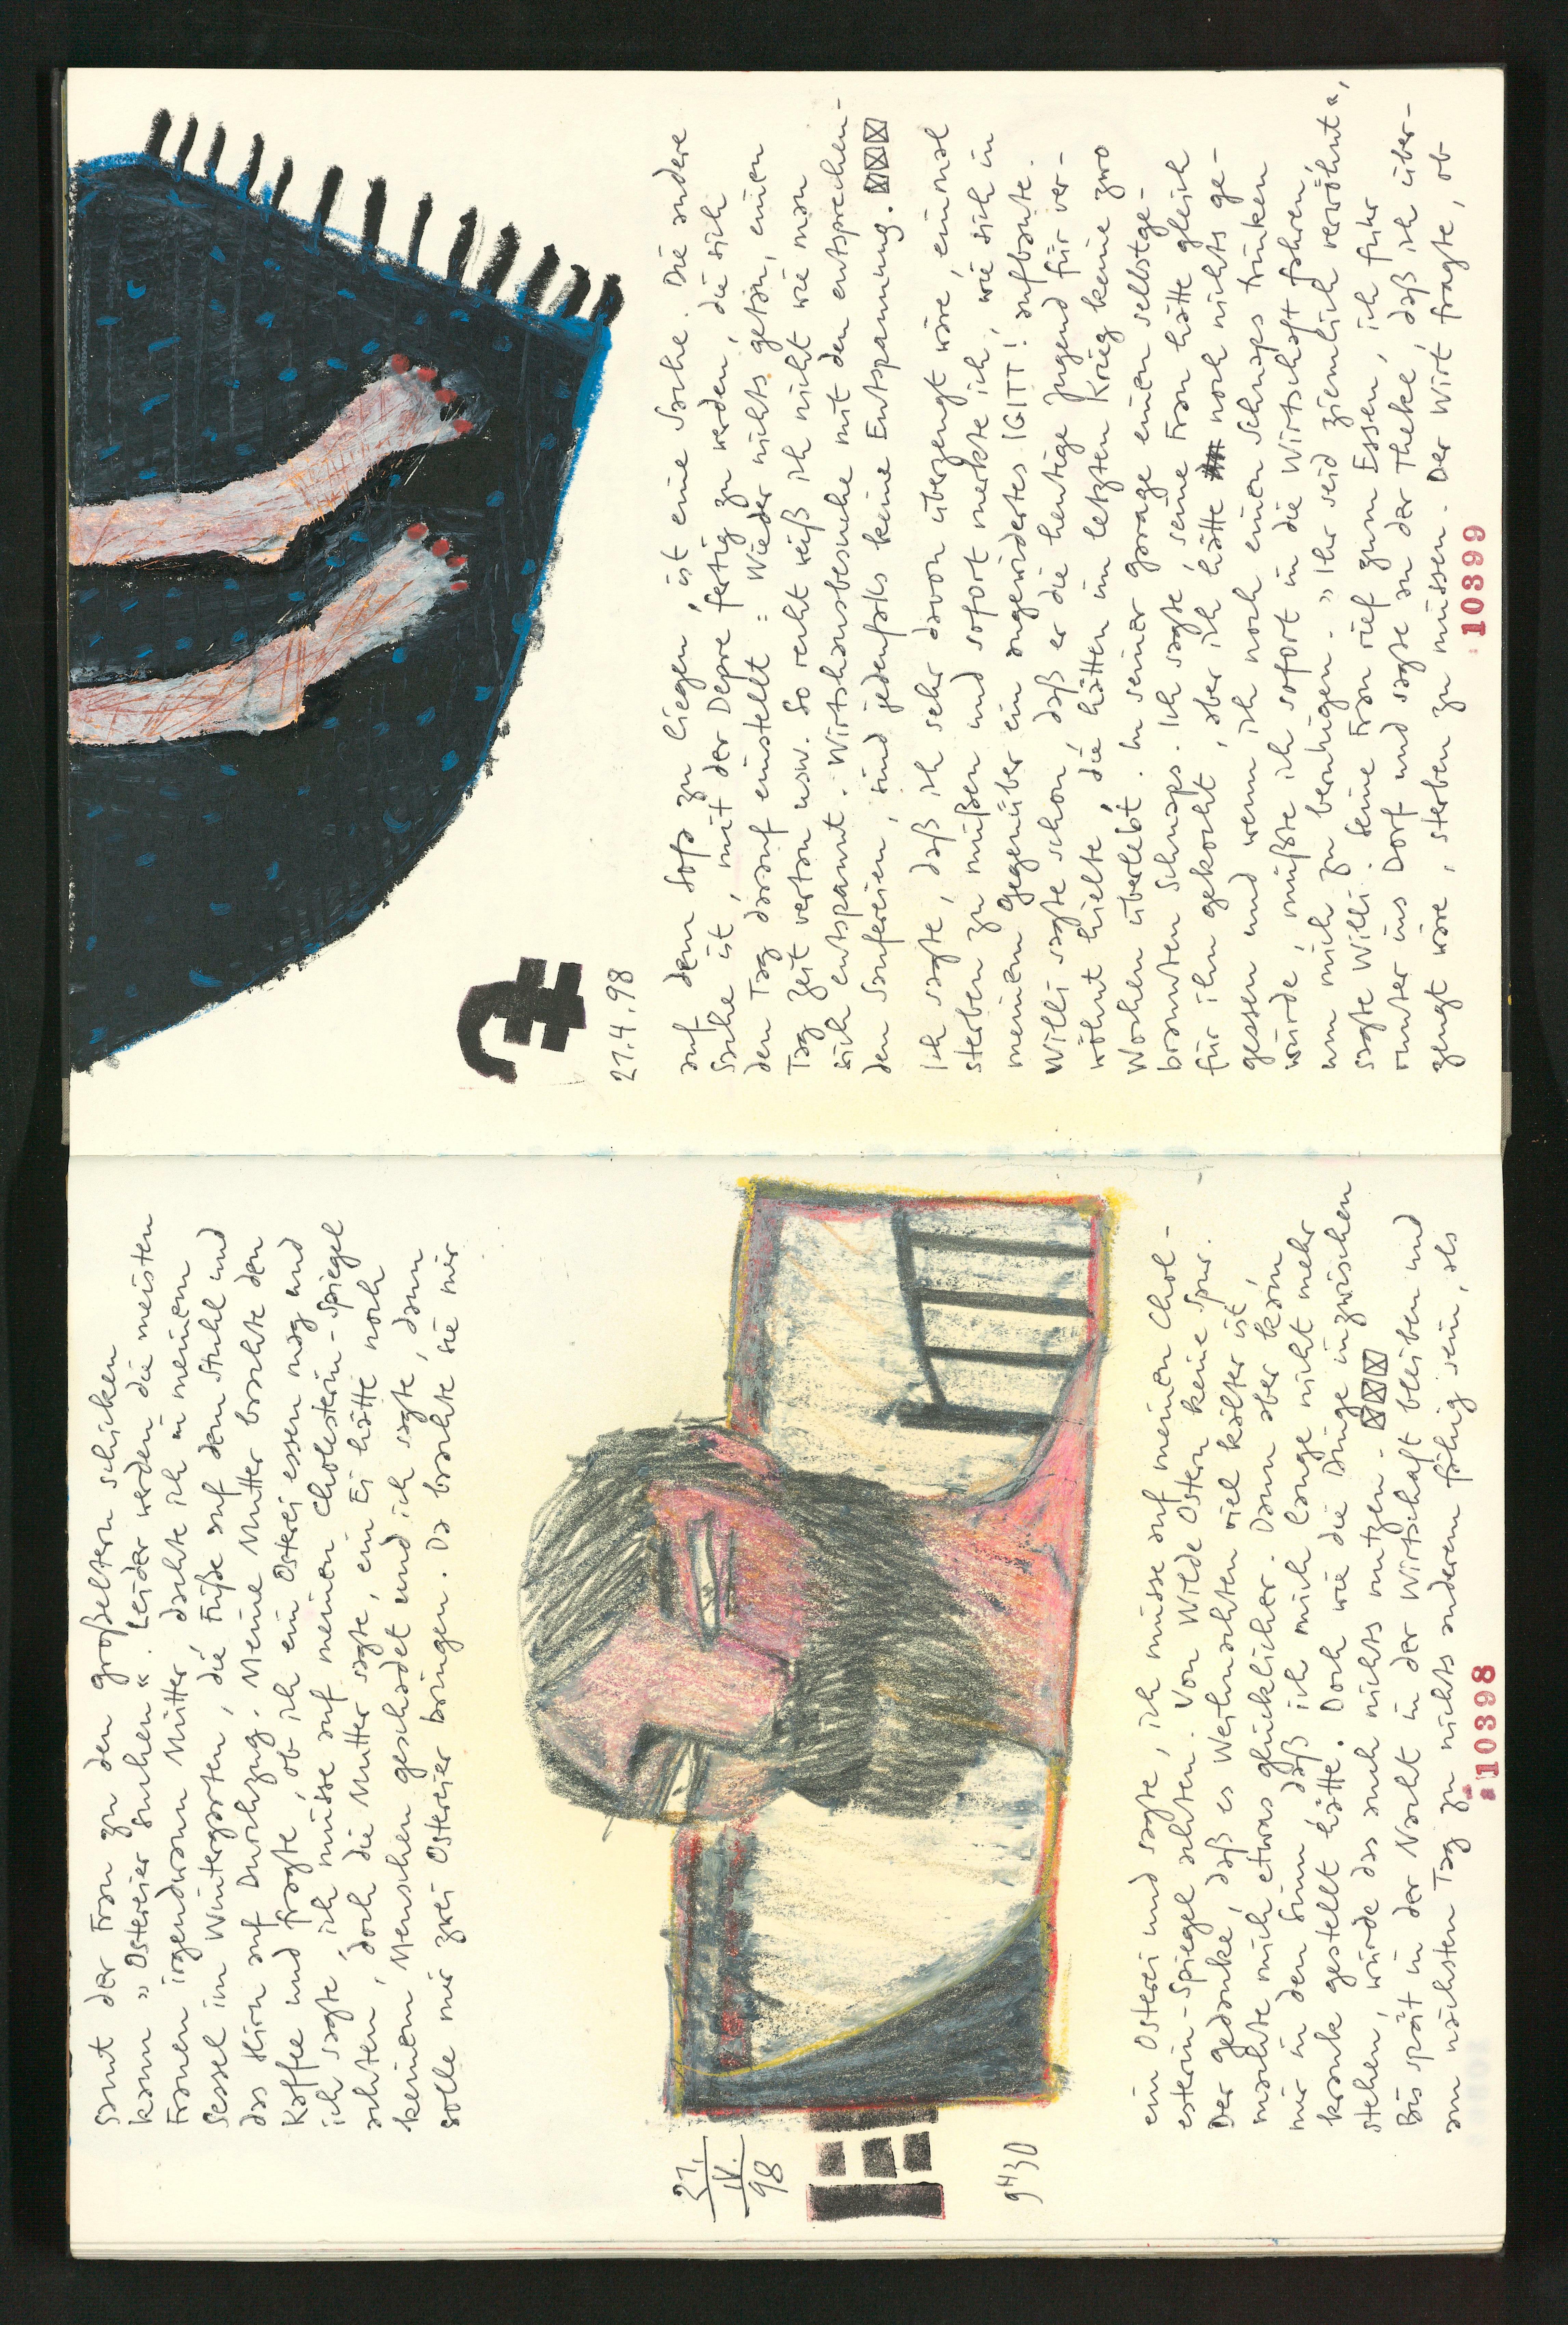 samt der Frau zu den Großeltern schicken
kann „Ostereier suchen“. Leider werden die meisten
Frauen irgendwann Mütter dachte ich in meinem
Sessel im Wintergarten, die Füße auf dem Stuhl und
das Hirn auf Durchzug. Meine Mutter brachte den
Kaffee und fragte, ob ich ein Osterei essen mag und
ich sagte, ich müsse auf meinen Cholesterin-Spiegel
achten, doch die Mutter sagte, ein Ei hätte noch
keinem Menschen geschadet und ich sagte, dann
solle mir zwei Ostereier bringen. Da brachte sie mir
21.
IV.
98
9H30
ein Osterei und sagte, ich müsse auf meinen Chol-
esterin-Spiegel achten. Von Wilde Ostern keine Spur.
Der Gedanke, daß es Weihnachten viel kälter ist,
machte mich etwas glücklicher. Dann aber kam
mir in den Sinn, daß ich mich lange nicht mehr
krank gestellt hätte. Doch wie die Dinge inzwischen
stehen, würde das auch nichts nutzen.
Bis spät in der Nacht in der Wirtschaft bleiben und
am nächsten Tag zu nichts anderem fähig sein, als
10398
21.4.98
auf dem Sofa zu liegen, ist eine Sache. Die andere
Sache ist, mit der Depre fertig zu werden, die sich
den Tag darauf einstellt: Wieder nichts getan, einen
Tag Zeit vertan usw. So recht weiß ich nicht wie man
sich entspannt. Wirtshausbesuche mit den entsprechen-
den Saufereien, sind jedenfalls keine Entspannung.
Ich sagte, daß ich sehr davon überzeugt wäre, einmal
sterben zu müßen und sofort merkte ich, wie sich in
meinem Gegenüber ein angewidertes IGITT! aufbaute.
Willi sagte schon, daß er die heutige Jugend für ver-
wöhnt hielte, die hätten im letzten Krieg keine zwo
Wochen überlebt. In seiner Garage einen selbstge-
brannten Schnaps. Ich sagte, seine Frau hätte gleich
für ihn gekocht, aber ich hätte noch nichts ge-
gessen und wenn ich noch einen Schnaps trinken
würde, müßte ich sofort in die Wirtschaft fahren,
um mich zu beruhigen. „Ihr seid ziemlich verwöhnt“,
sagte Willi. Seine Frau rief zum Essen, ich fuhr
runter ins Dorf und sagte an der Theke, daß ich über-
zeugt wäre, sterben zu müssen. Der Wirt fragte, ob
10399